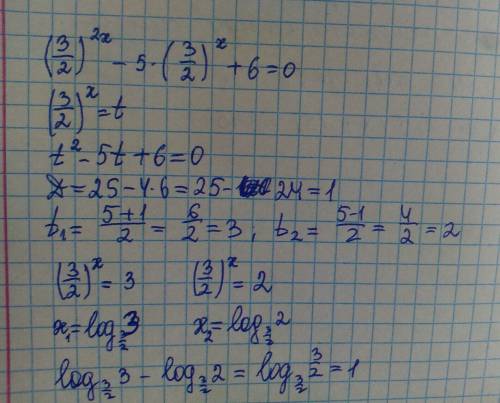 (3/2)^2x - 5·(3/2)^x + 6 = 0
(3/2)^x = t
t² - 5t + 6 = 0
D = 25 - 4·6 = 25 - 24 = 1
t₁ = (5+1)/2 = 6/2 = 3, t₂ = (5-1)/2 = 4/2 = 2
(3/2)^x = 3 (3/2)^x = 2
x₁ = log_(3/2) 3 x₂ = log_(3/2) 2
log_(3/2) 3 - log_(3/2) 2 = log_(3/2) 3/2 = 1